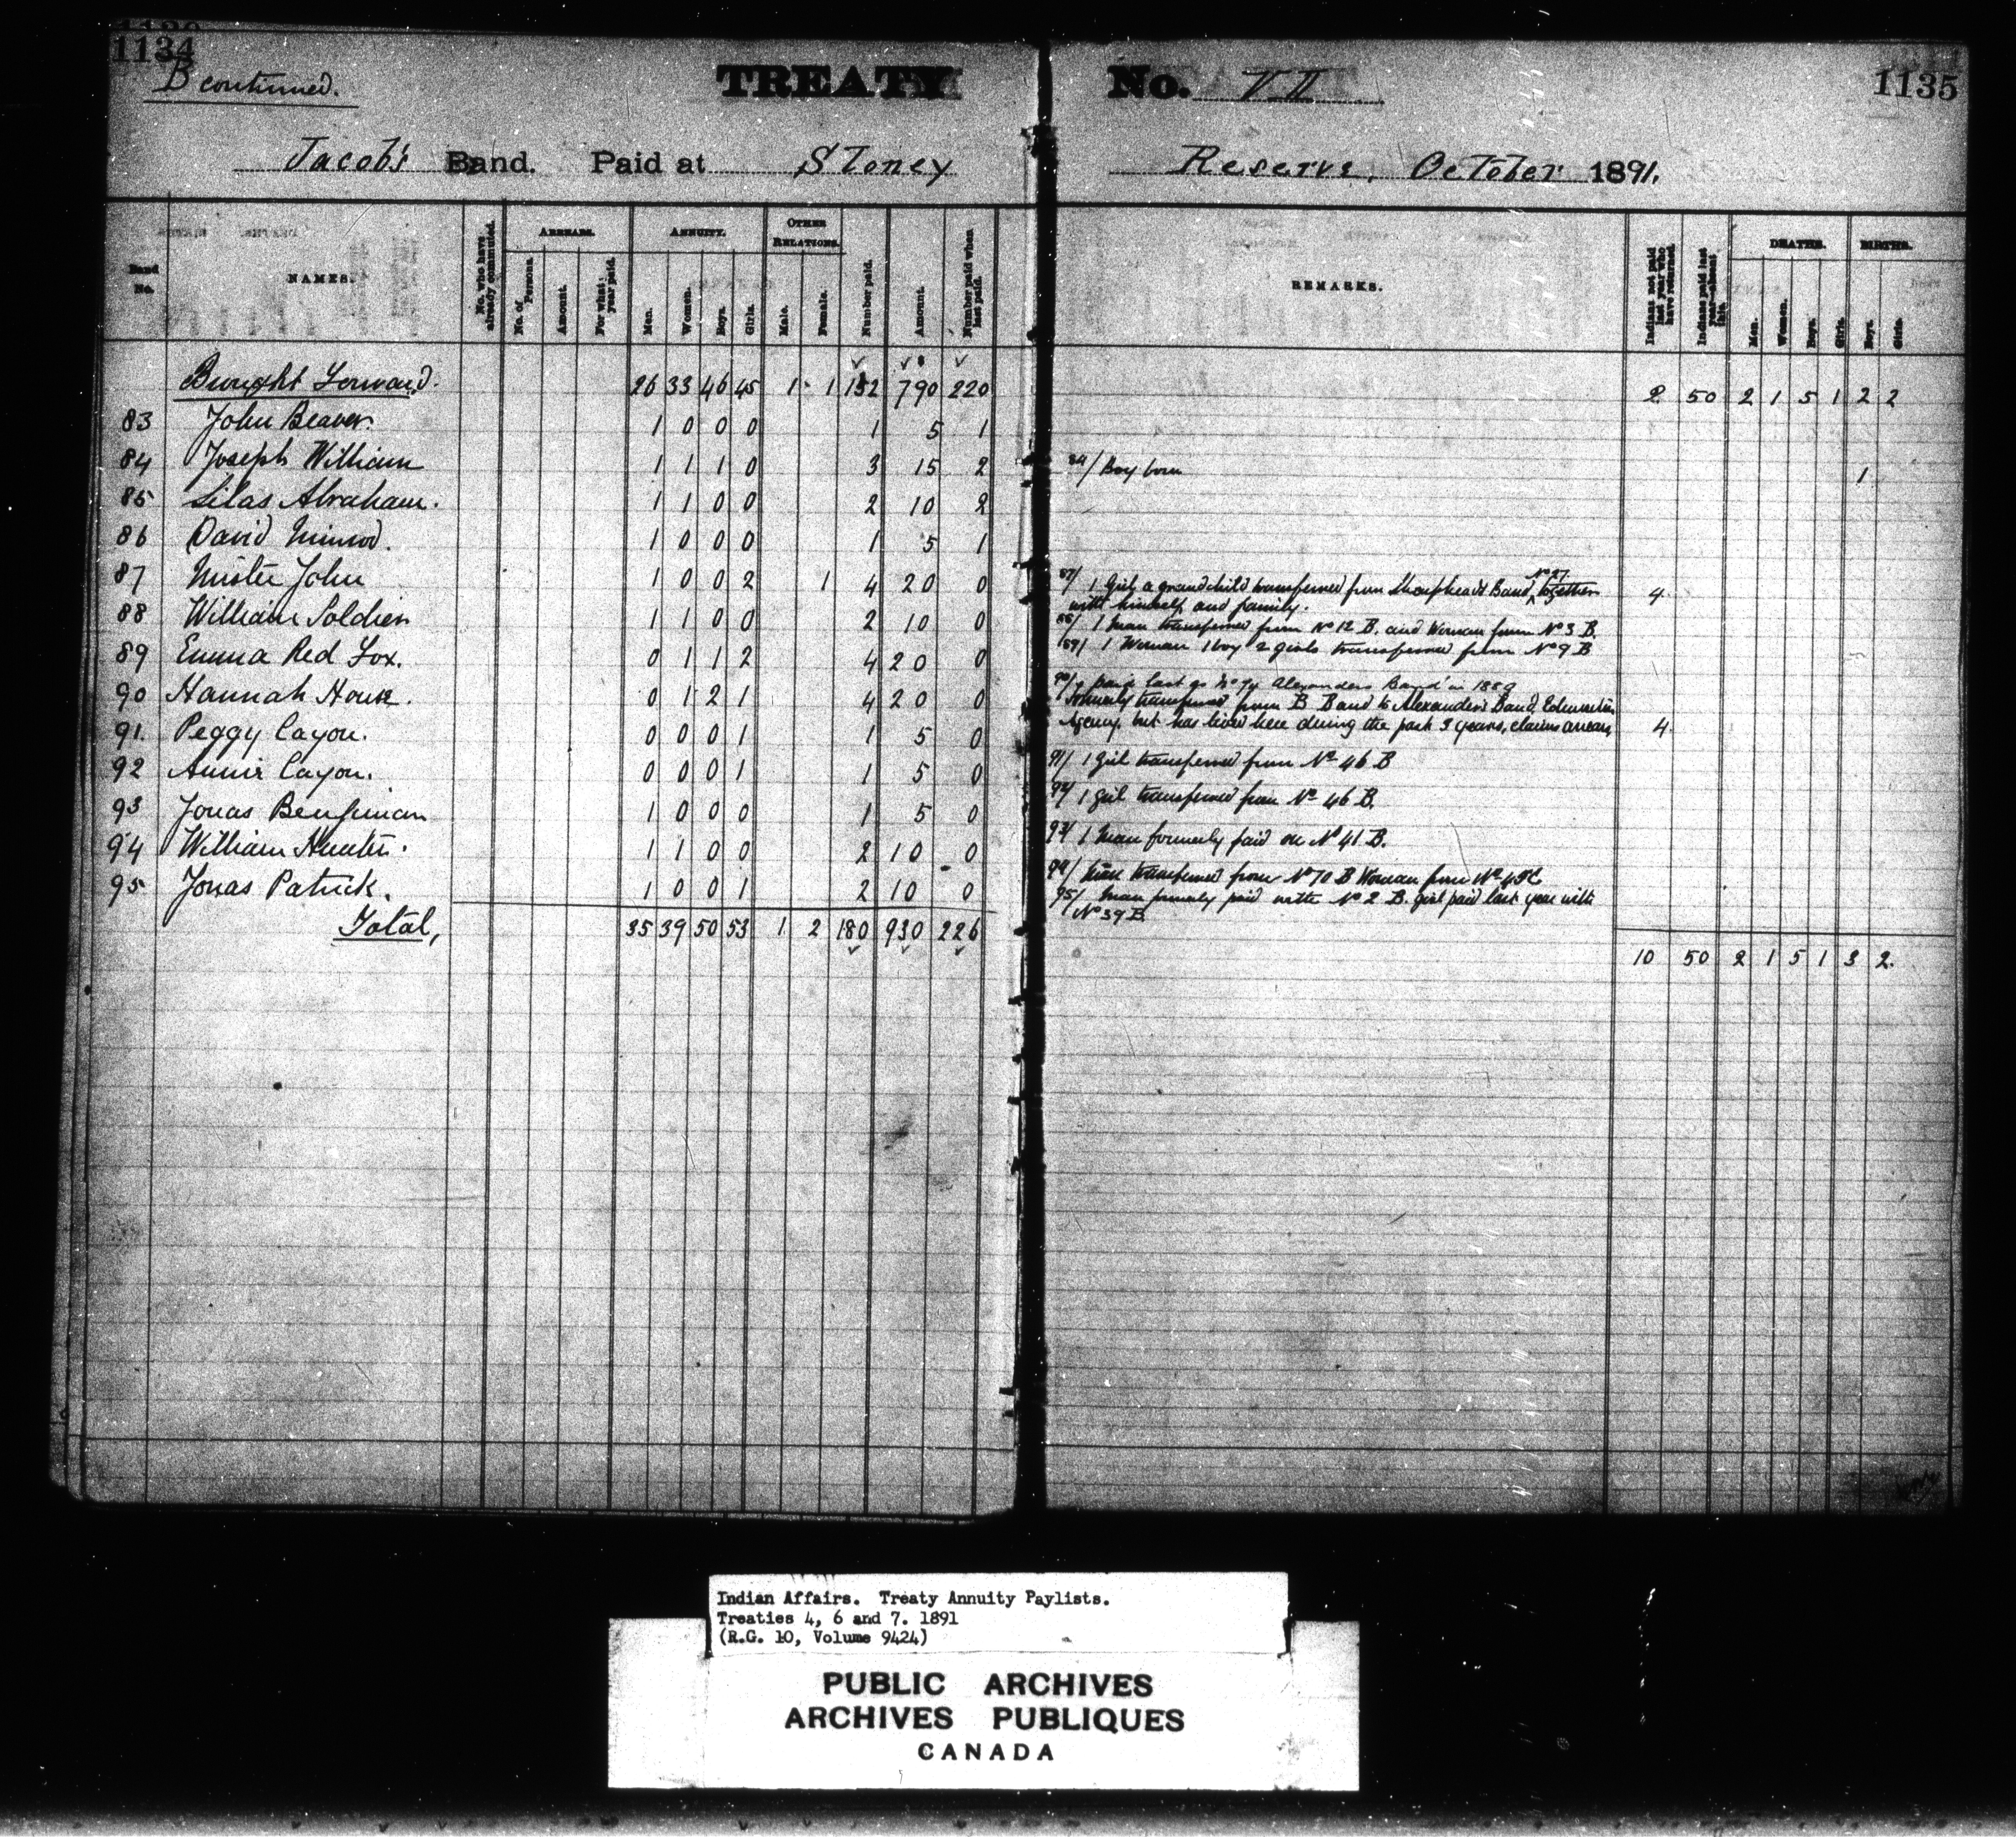 1134
B continued.
TREATY No. VII
1135
Jacob's Band. Paid at Stoney Reserve, October 1891.
Band No.
NAMES.
No. who have already commuted.
ARREARS.
No. of Persons.
Amount.
For what year paid.
ANNUITY.
Men.
Women.
Boys.
Girls.
OTHER RELATIONS.
Male.
Female.
Number paid.
Amount.
Number paid when last paid.
REMARKS.
Indians not paid last year who have returned.
Indians paid last year—absent this.
DEATHS.
Men.
Women.
Boys.
Girls.
BIRTHS.
Boys.
Girls.
Brought Forward. 26 33 46 45 1 1 152 790 220 2 50 2 1 5 1 2 2
83 John Beaver. 1 0 0 0 1 5 1
84 Joseph William 1 1 1 0 3 15 2 84/ Boy born 1
85 Silas Abraham. 1 1 0 0 2 10 2
86 David Nimrod. 1 0 0 0 1 5 1
87 Mister John 1 0 0 2 1 4 20 0 87/ 1 Girl, a grandchild transferred from Sharphead's Band, No 27 together 4
with himself and family.
88 William Soldier 1 1 0 0 2 10 0 88/ 1 Man transferred from No 12 B. and Woman from No 3 B.
89 Emma Red Fox. 0 1 1 2 4 20 0 89/ 1 Woman 1 boy 2 girls transferred from No 9 B
90 Hannah House. 0 1 2 1 4 20 0 90/ paid last as No 74 Alexanders Band in 1889
Formerly transferred from B Band to Alexander's Band, Edmonton
Agency but has lived here during the past 3 years, claims arrears 4.
91. Peggy Cayou. 0 0 0 1 1 5 0 91/ 1 girl transferred from No 46 B
92 Annie Cayou. 0 0 0 1 1 5 0 92/ 1 girl transferred from No 46 B.
93 Jonas Benjiman 1 0 0 0 1 5 0 93/ 1 Man formerly paid on No 41 B.
94 William Hunter. 1 1 0 0 2 10 0 94/ Man transferred from No 70 B Woman from No
95 Jonas Patrick. 1 0 0 1 2 10 0 95/ Man formerly paid with No 2 B. girl paid last year with
No 39 B
Total, 35 39 50 53 1 2 180 930 226 10 50 2 1 5 1 3 2.
Indian Affairs. Treaty Annuity Paylists.
Treaties 4, 6 and 7. 1891
(R.G. 10, Volume 9424)
PUBLIC ARCHIVES
ARCHIVES PUBLIQUES
CANADA